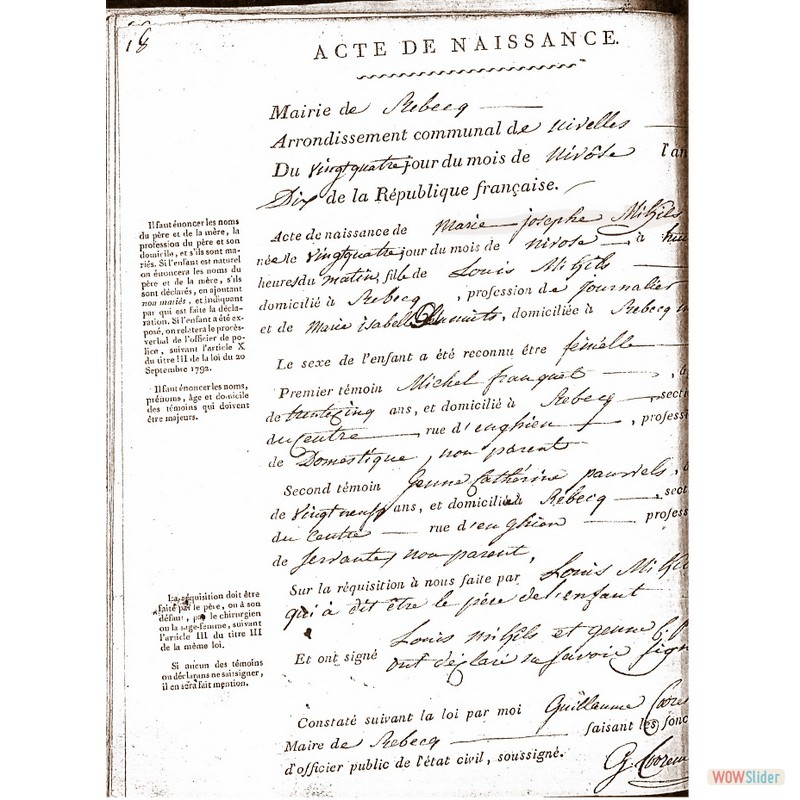 18
ACTE DE NAISSANCE.
Mairie de Rebecq
Arrondissement communal de nivelles
Du vingtquatre jour du mois de nivôse l'an
Dix de la République française.
Acte de naissance de Marie josephe Mihils
née le vingtquatre jour du mois de nivose à hui
heures du matin, fille de Louis Mihils
domicilié à Rebecq, profession de journalier
et de Marie isabelle domiciliée à Rebecq
Le sexe de l'enfant a été reconnu être fémelle
Premier témoin Michel franquet
de trentecinq ans, et domicilié à Rebecq secti
du Centre rue d'enghien, professi
de Domestique, non parent
Second témoin Jenne Cathérine pauwels,
de vingt neuf ans, et domicilié à Rebecq sect
du Centre rue d'enghien profess
de servante, non parent,
Sur la réquisition à nous faite par Louis Mihi
qui à dit être le père de l'enfant
Et ont signé Louis mihils et jenne C. P
ont déclaré ne savoir sign
Constaté suivant la loi par moi Guillaume
Maire de Rebecq faisant les fonc
d'officier public de l'état civil, soussigné.
G.
Il faut énoncer les noms
du père et de la mère, la
profession du père et son
domicile, et s'ils sont ma-
riés. Si l'enfant est naturel
on énoncera les noms du
père et de la mère, s'ils
sont déclarés, en ajoutant
non mariés, et indiquant
par qui est faite la décla-
ration. Si l'enfant a été ex-
posé, on relatera le procès-
verbal de l'officier de po-
lice, suivant l'article X
du titre III de la loi du 20
Septembre 1792.
Il faut énoncer les noms,
prénoms, âge et domicile
des témoins qui doivent
être majeurs.
La réquisition doit être
faite par le père, ou à son
défaut, par le chirurgien
ou la sage-femme, suivant
l'article III du titre III
de la même loi.
Si aucun des témoins
ou déclarans ne sait signer,
il en sera fait mention.
WOWSlider